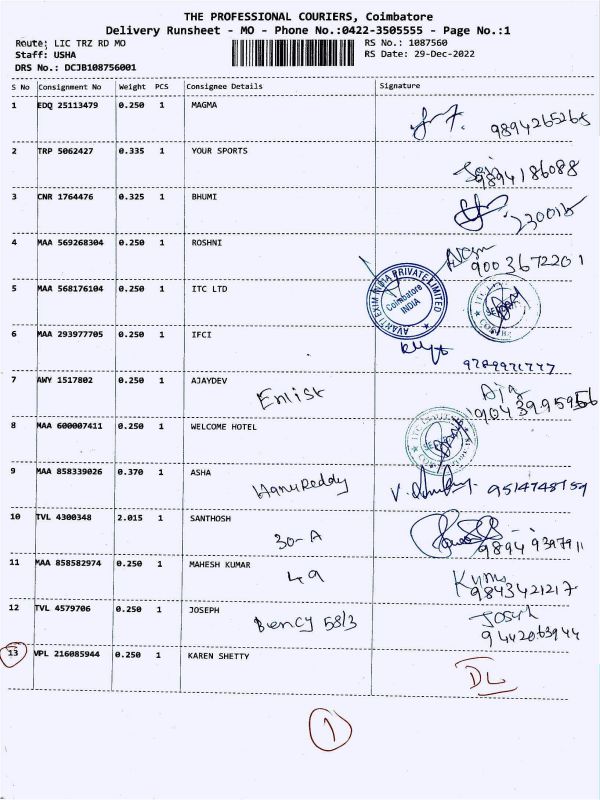 THE PROFESSIONAL COURIERS, Coimbatore
Delivery Runsheet - MO - Phone No.:0422-3505555 - Page No.:1
Route: LIC TRZ RD MO RS No.: 1087560
Staff: USHA RS Date: 29-Dec-2022
DRS No.: DCJB108756001
S No Consignment No Weight PCS Consignee Details Signature
1 EDQ 25113479 0.250 1 MAGMA
9894265265
2 TRP 5062427 0.335 1 YOUR SPORTS
9894186088
3 CNR 1764476 0.325 1 BHUMI
4 MAA 569268304 0.250 1 ROSHNI
9003672201
5 MAA 568176104 0.250 1 ITC LTD
AVANTI EXIM INDIA PRIVATE LIMITED
Coimbatore
INDIA
6 MAA 293977705 0.250 1 IFCI
7 AWY 1517802 0.250 1 AJAYDEV
Enlist
8 MAA 600007411 0.250 1 WELCOME HOTEL
9 MAA 858339026 0.370 1 ASHA
HanuReddy 9514748759
10 TVL 4300348 2.015 1 SANTHOSH
30-A 9894939791
11 MAA 858582974 0.250 1 MAHESH KUMAR
49 9843421217
12 TVL 4579706 0.250 1 JOSEPH
Bency 58/3 9442063944
13 VPL 216085944 0.250 1 KAREN SHETTY
DL
1